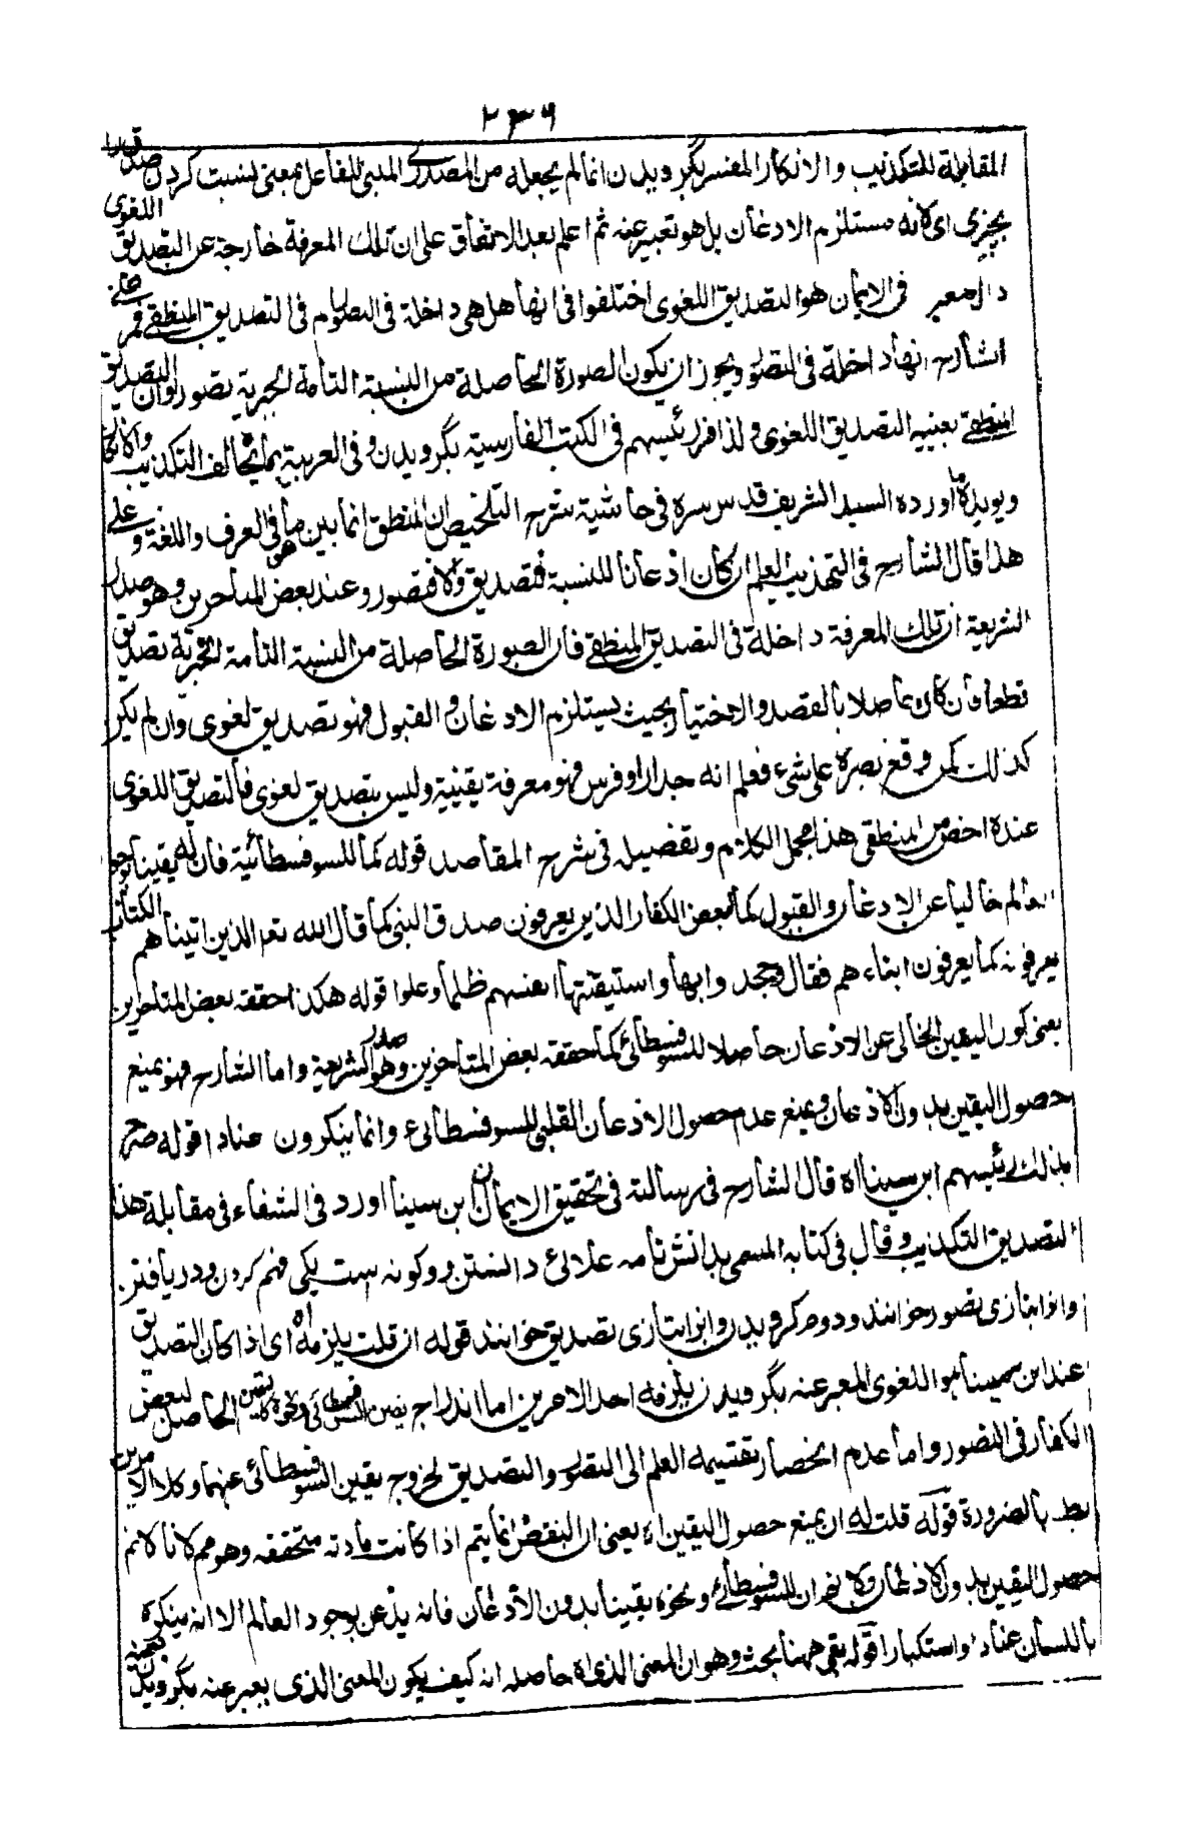 ٢٣٦
المقابلة للتكذيب والانكار المفسر بگرويدن انما لم يجعله من المصدر المبنى للفاعل بمعنى نسبت كردن صدق را
بچيزى اى كانه مستلزم الاذعان بل هو تعبير عنه ثم اعلم بعد الاتفاق على ان تلك المعرفة خارجة عن التصديق اللغوى
فى الايمان هو التصديق اللغوى اختلفوا فى انها هل هى داخلة فى التصور ام فى التصديق المنطقى
الشارح انها داخلة فى التصور ويجوز ان يكون الصورة الحاصلة من النسبة التامة الخبرية تصور او ان التصديق
المنطقى بعينه التصديق اللغوى ولذا فسر رئيسهم فى الكتب الفارسية بگرويدن وفى العربية بما يخالف التكذيب والانكار
ويويده ما اورده السيد الشريف قدس سره فى حاشية شرح التلخيص ان المنطق انما يبين ما هو فى العرف واللغة وعلى
هذا قال الشارح فى التهذيب العلم ان كان اذعانا للنسبة فتصديق والا فتصور وعند بعض المتاخرين وهو صدر
الشريعة ان تلك المعرفة داخلة فى التصديق المنطقى فان الصورة الحاصلة من النسبة التامة الخبرية تصديق
قطعا فان كان حاصلا بالقصد والاختيار بحيث يستلزم الاذعان والقبول فهو تصديق لغوى وان لم يكن
كذلك كمن وقع بصره على شىء فعلم انه جدار او فرس فهو معرفة يقينية وليس بتصديق لغوى فالتصديق اللغوى
عنده اخص من المنطقى هذا مجمل الكلام وتفصيله فى شرح المقاصد قوله كما للسوفسطائية فان له يقينا بوجود
العالم خاليا عن الاذعان والقبول كما لبعض الكفار الذين يعرفون صدق النبى كما قال الله تعم الذين اتيناهم الكتاب
يعرفونه كما يعرفون ابناءهم فقال وجحدوا بها واستيقنتها انفسهم ظلما وعلوا قوله هكذا حققه بعض المتاخرين
يعنى كون اليقين الخالى عن الاذعان حاصلا للسوفسطائى كما حققه بعض المتاخرين وهو صدر الشريعة واما الشارح فهو يمنع
حصول اليقين بدون الاذعان ويمنع عدم حصول الاذعان القلبى للسوفسطائى وانما ينكرون عنادا قوله صرح
بذلك رئيسهم ابن سينا اه قال الشارح فى رسالته فى تحقيق الايمان ان ابن سينا اورد فى الشفاء فى مقابلة هذا
التصديق التكذيب وقال فى كتابه المسمى بدانش نامه علائى دانستن دو گونه است يكى فهم كردن ودريافتن
وانرا بتازى تصور خوانند ودوم گرويدن وانرا بتازى تصديق خوانند قوله ان قلت يلزمه اه اى اذا كان التصديق
عند ابن سينا هو اللغوى المعبر عنه بگرويدن يلزمه احد الامرين اما اندراج يقين السوفسطائى ونحوه كاليقين الحاصل لبعض
الكفار فى التصور واما عدم انحصار تقسيمه العلم الى التصور والتصديق لخروج يقين السوفسطائى عنهما وكلا الامرين
بط بالضرورة قوله قلت له ان يمنع حصول اليقين اه يعنى ان النقض انما يتم اذا كانت مادته متحققه وهو مم لانا لا نم
حصول اليقين بدون الاذعان ولا نم ان للسوفسطائى ونحوه يقينا بدون الاذعان فانه يذعن بوجود العالم الا انه ينكره
باللسان عنادا واستكبارا قوله بقى ههنا بحث وهو ان المعنى الذى اه حاصله انه كيف يكون المعنى الذى يعبر عنه بگرويدن